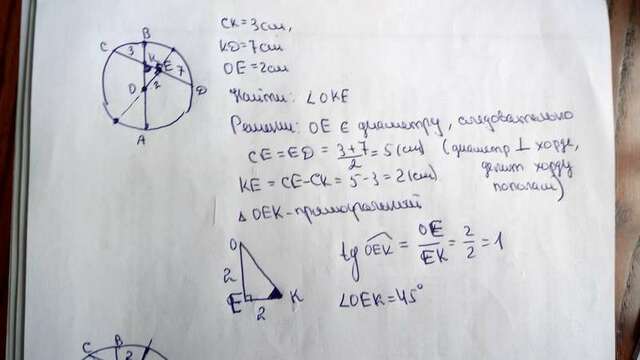 CK = 3 см,
KD = 7 см
OE = 2 см
Найти: ∠OKE
Решение: OE ∈ диаметру, следовательно
CE = ED = 3+7/2 = 5 (см) (диаметр ⊥ хорде,
делит хорду
пополам)
KE = CE - CK = 5 - 3 = 2 (см)
△ OEK - прямоугольный
tg OEK = OE/EK = 2/2 = 1
∠OEK = 45°
O
2
E
2
K
B
C
3
K
E
7
D
2
O
A
B
C
2